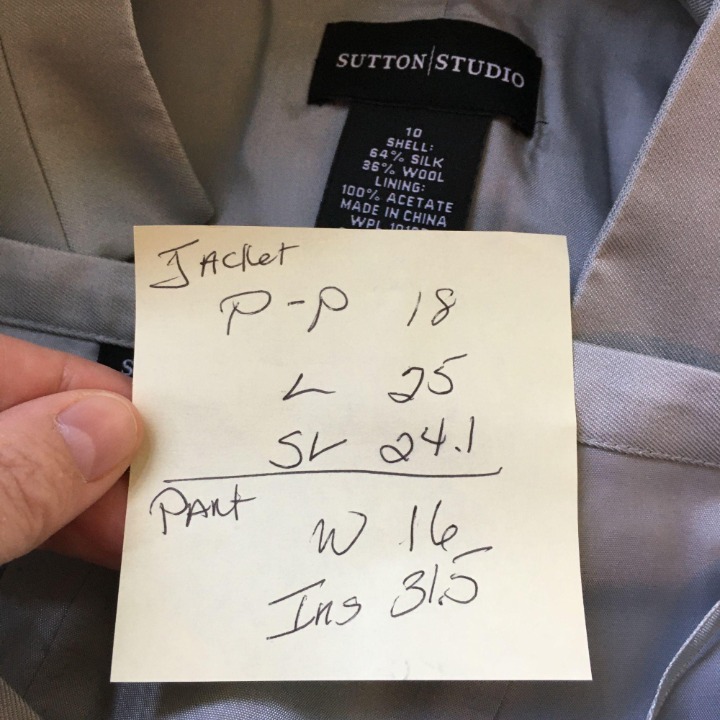 SUTTON|STUDIO
10
SHELL:
64% SILK
36% WOOL
LINING:
100% ACETATE
MADE IN CHINA
WPL
S
JAcket
P-P 18
L 25
SL 24.1
PANt
W 16
Ins 31.5